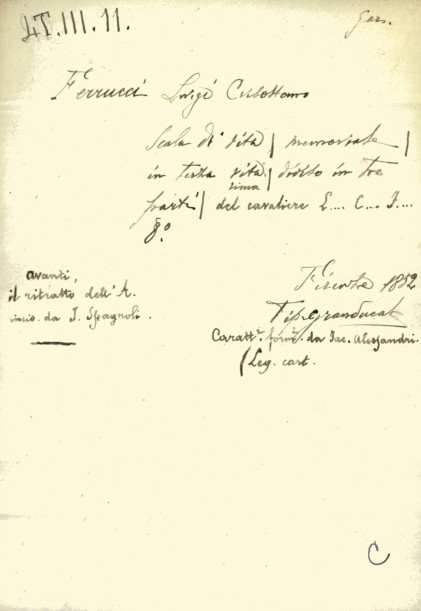 LT.III.11.
Ferrucci Luigi Crisostomo
Scala di vita | memoriale |
in terza vita | diviso in tre
rima
parti | del cavaliere L... C... F...
8.°
avanti,
il ritratto dell'A.
incis. da I. Spagnoli.
1852
Tip. Granducal
Caratt. forni. da Iac. Alessandri.
(Leg. cart.
C